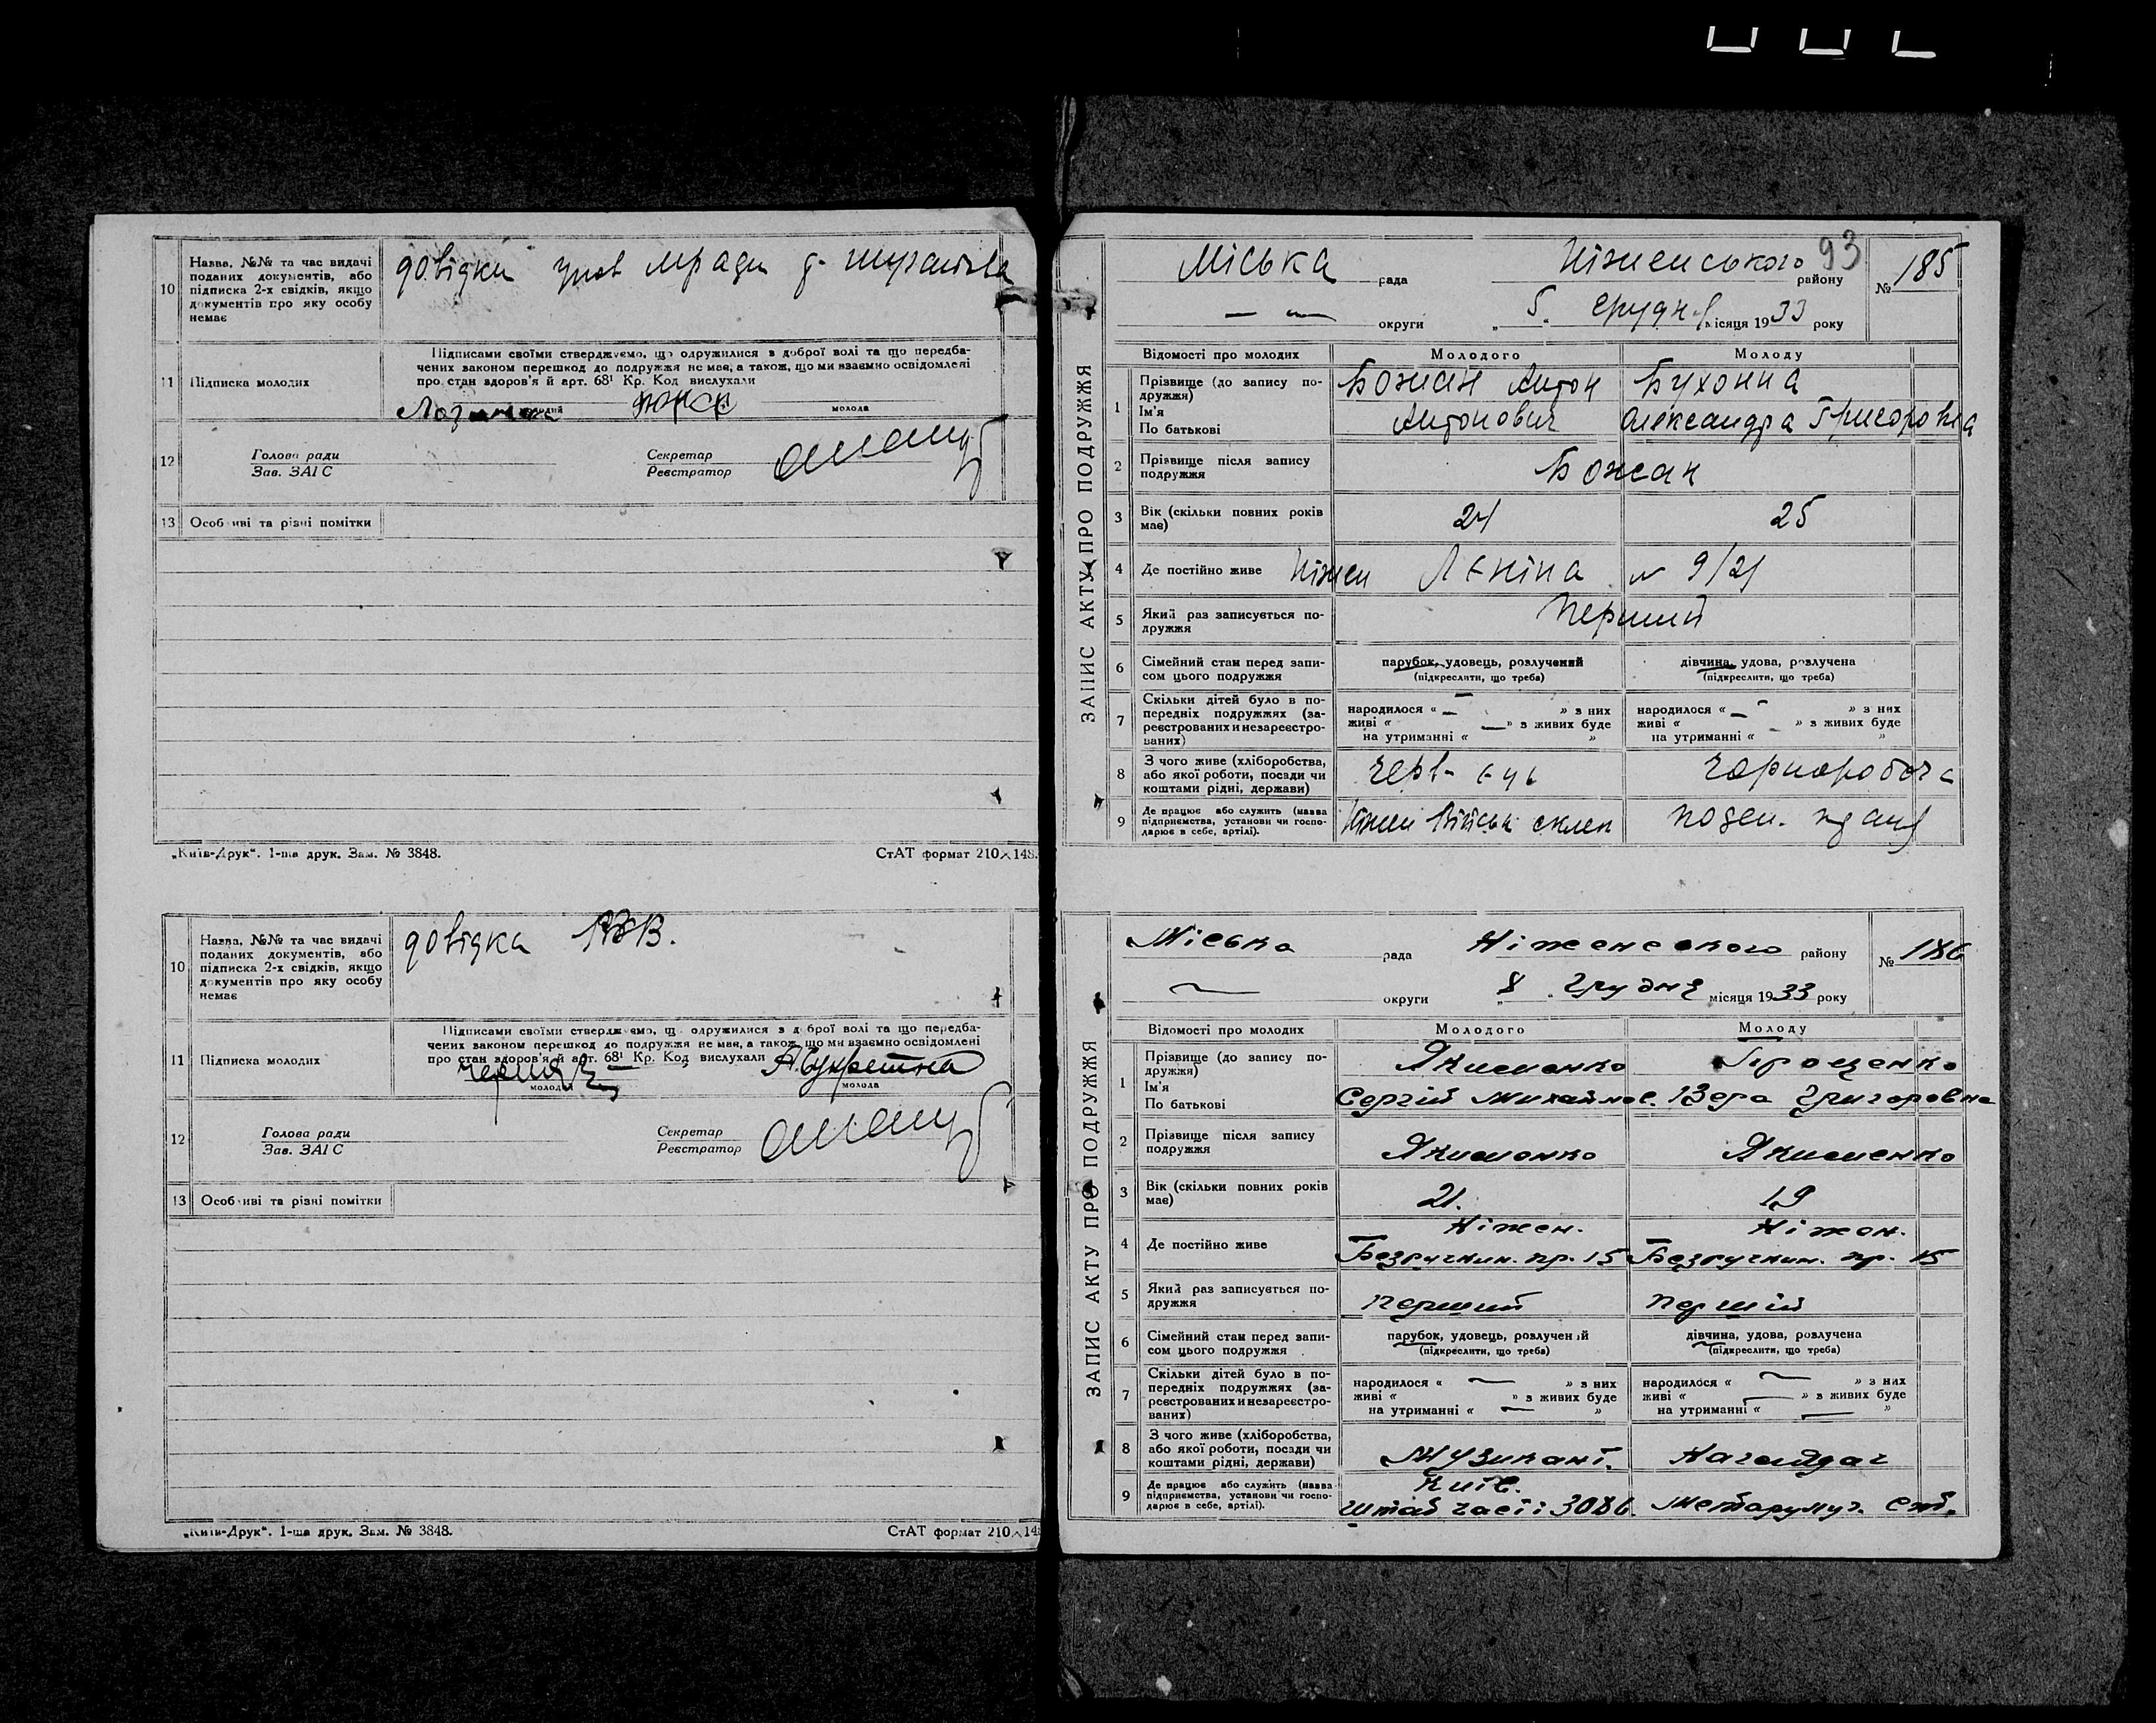 10 Назва, №№ та час видачі
поданих документів, або
підписка 2-х свідків, якщо
документів про яку особу
немає
довідки
11 Підписка молодих
Підписами своїми стверджуємо, що одружилися з доброї волі та що передба-
чених законом перешкод до подружжя не має, а також, що ми взаємно освідомлені
про стан здоров'я й арт. 68¹ Кр. Код вислухали
молодий молода
12 Голова ради Секретар
Зав. ЗАГС Реєстратор
13 Особливі та різні помітки
„Київ-Друк“. 1-ша друк. Зам. № 3848. СтАТ формат 210×148.
10 Назва, №№ та час видачі
поданих документів, або
підписка 2-х свідків, якщо
документів про яку особу
немає
довідка
11 Підписка молодих
Підписами своїми стверджуємо, що одружилися з доброї волі та що передба-
чених законом перешкод до подружжя не має, а також, що ми взаємно освідомлені
про стан здоров'я й арт. 68¹ Кр. Код вислухали
молодий молода
12 Голова ради Секретар
Зав. ЗАГС Реєстратор
13 Особливі та різні помітки
„Київ-Друк“. 1-ша друк. Зам. № 3848. СтАТ формат 210×148
93
ЗАПИС АКТУ ПРО ПОДРУЖЖЯ
Міська рада Ніженського району № 185
— — округи „5“ грудня місяця 1933 року
Відомості про молодих Молодого Молоду
1 Прізвище (до запису по-
дружжя)
Ім'я
По батькові
Божан Антон
Антонович
Бухонна
Олександра Григоровна
2 Прізвище після запису
подружжя
Божан
3 Вік (скільки повних років
має)
24 25
4 Де постійно живе Ніжен Леніна № 9/21
5 Який раз записується по-
дружжя
Перший
6 Сімейний стан перед запи-
сом цього подружжя
парубок, удовець, розлучений
(підкреслити, що треба)
дівчина, удова, розлучена
(підкреслити, що треба)
7 Скільки дітей було в по-
передніх подружжях (за-
реєстрованих и незареєстро-
ваних)
народилося « — » з них
живі « — » з живих буде
на утриманні « »
народилося « — » з них
живі « - » з живих буде
на утриманні « »
8 З чого живе (хліборобства,
або якої роботи, посади чи
коштами рідні, держави)
чорноробоча
9 Де працює або служить (назва
підприємства, установи чи госпо-
дарює в себе, артілі).
Ніжен
ЗАПИС АКТУ ПРО ПОДРУЖЖЯ
Міська рада Ніженського району № 186
— округи „8“ Грудня місяця 1933 року
Відомості про молодих Молодого Молоду
1 Прізвище (до запису по-
дружжя)
Ім'я
По батькові
Якименко
Сергій Михайлов.
Прощенко
Вера Григоровна
2 Прізвище після запису
подружжя
Якименко Якименко
3 Вік (скільки повних років
має)
21. 19
4 Де постійно живе
Ніжен.
Безручкин. пр. 15
Ніжен.
Безручкин. пр. 15
5 Який раз записується по-
дружжя
перший перший
6 Сімейний стан перед запи-
сом цього подружжя
парубок, удовець, розлучений
(підкреслити, що треба)
дівчина, удова, розлучена
(підкреслити, що треба)
7 Скільки дітей було в по-
передніх подружжях (за-
реєстрованих и незареєстро-
ваних)
народилося « — » з них
живі « » з живих буде
на утриманні « — »
народилося « — » з них
живі « — » з живих буде
на утриманні « — »
8 З чого живе (хліборобства,
або якої роботи, посади чи
коштами рідні, держави)
Музикант.
9 Де працює або служить (назва
підприємства, установи чи госпо-
дарює в себе, артілі).
Київ.
штаб часті 3086.